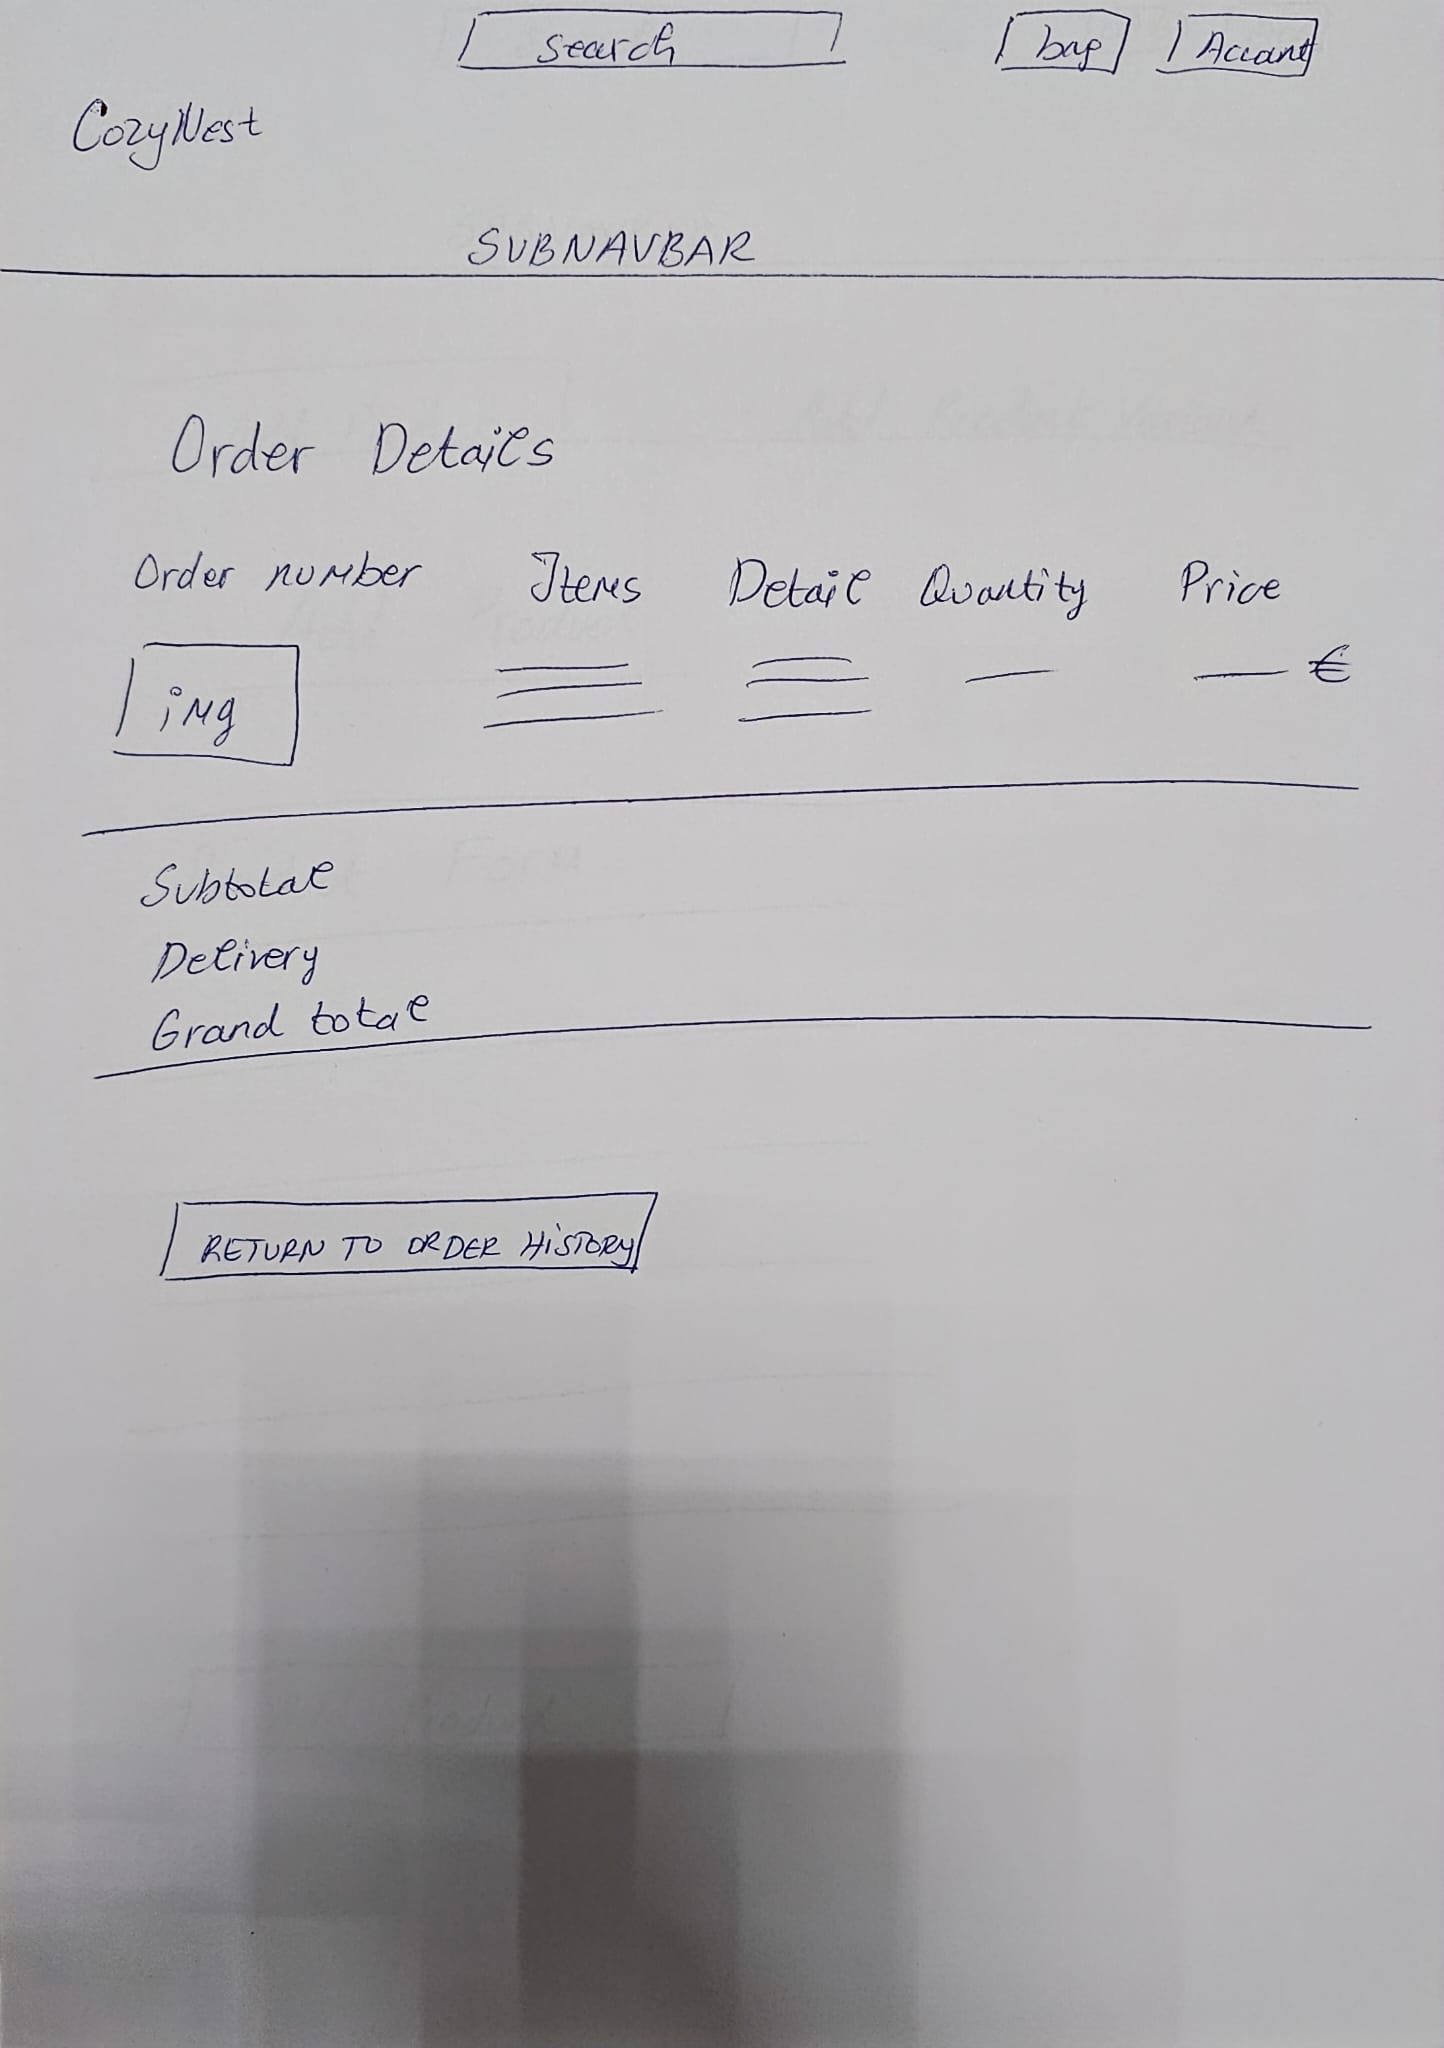 Search bag Account
CozyNest
SUBNAVBAR
Order Details
Order number Items Detail Quantity Price
img €
Subtotal
Delivery
Grand total
RETURN TO ORDER HISTORY